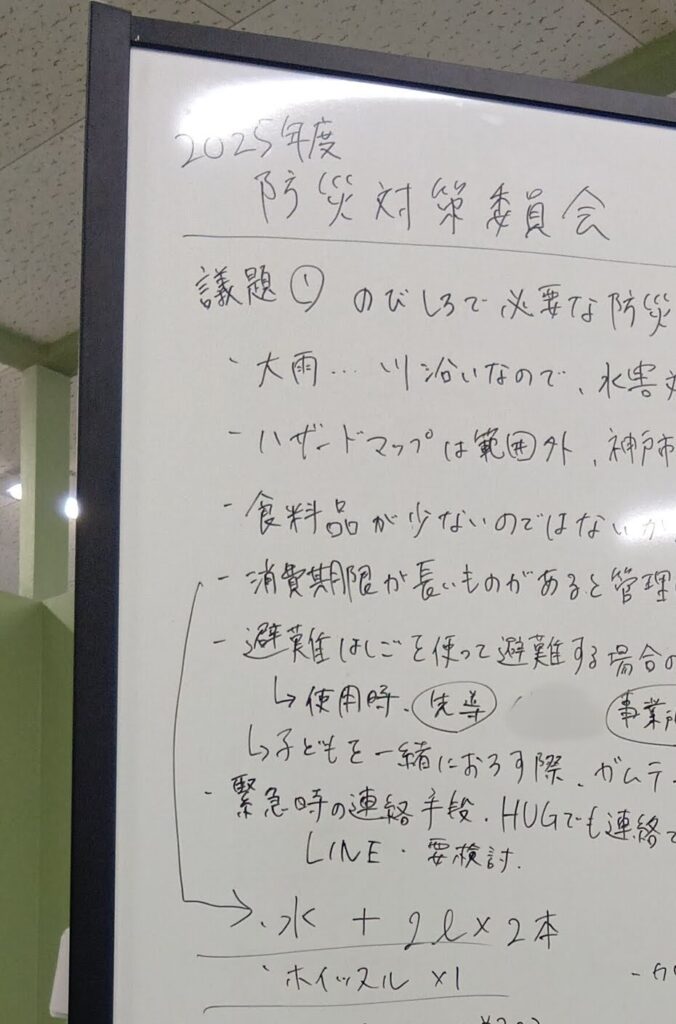 2025年度
防災対策委員会
議題① のびしろで必要な防災
・大雨… 川沿いなので、水害対
- ハザードマップは範囲外、神戸市
- 食料品が少ないのではないか
- 消費期限が長いものがあると管理
- 避難はしごを使って避難する場合の
↳使用時、先導 事業所
↳子どもを一緒におろす際、ガムテ
・緊急時の連絡手段、HUGでも連絡で
LINE・要検討.
→・水 + 2ℓ×2本
・ホイッスル ×1